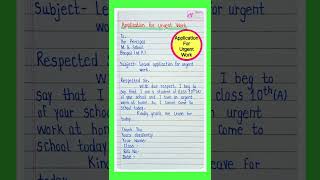 Application for Urgent Work
To,
The Principal
M. S. School
Bhopal (M.P.)
Subject:- Leave application for urgent
work.
Respected Sir,
With due respect, I beg to
say that I am a student of class 10th(A)
of your school and I have an urgent
work at home. So, I cannot come to
school today.
Kindly grant me leave for
today.
Thank You
Yours obediently
Your Name-
Class-
Roll No-
Date-
Application
For
Urgent
Work
Subject:-
for urgent
Respected Sir
I beg
say that I
class 10th(A)
of your scho
urgent
work at ho
come to
school today
Kind
leave for